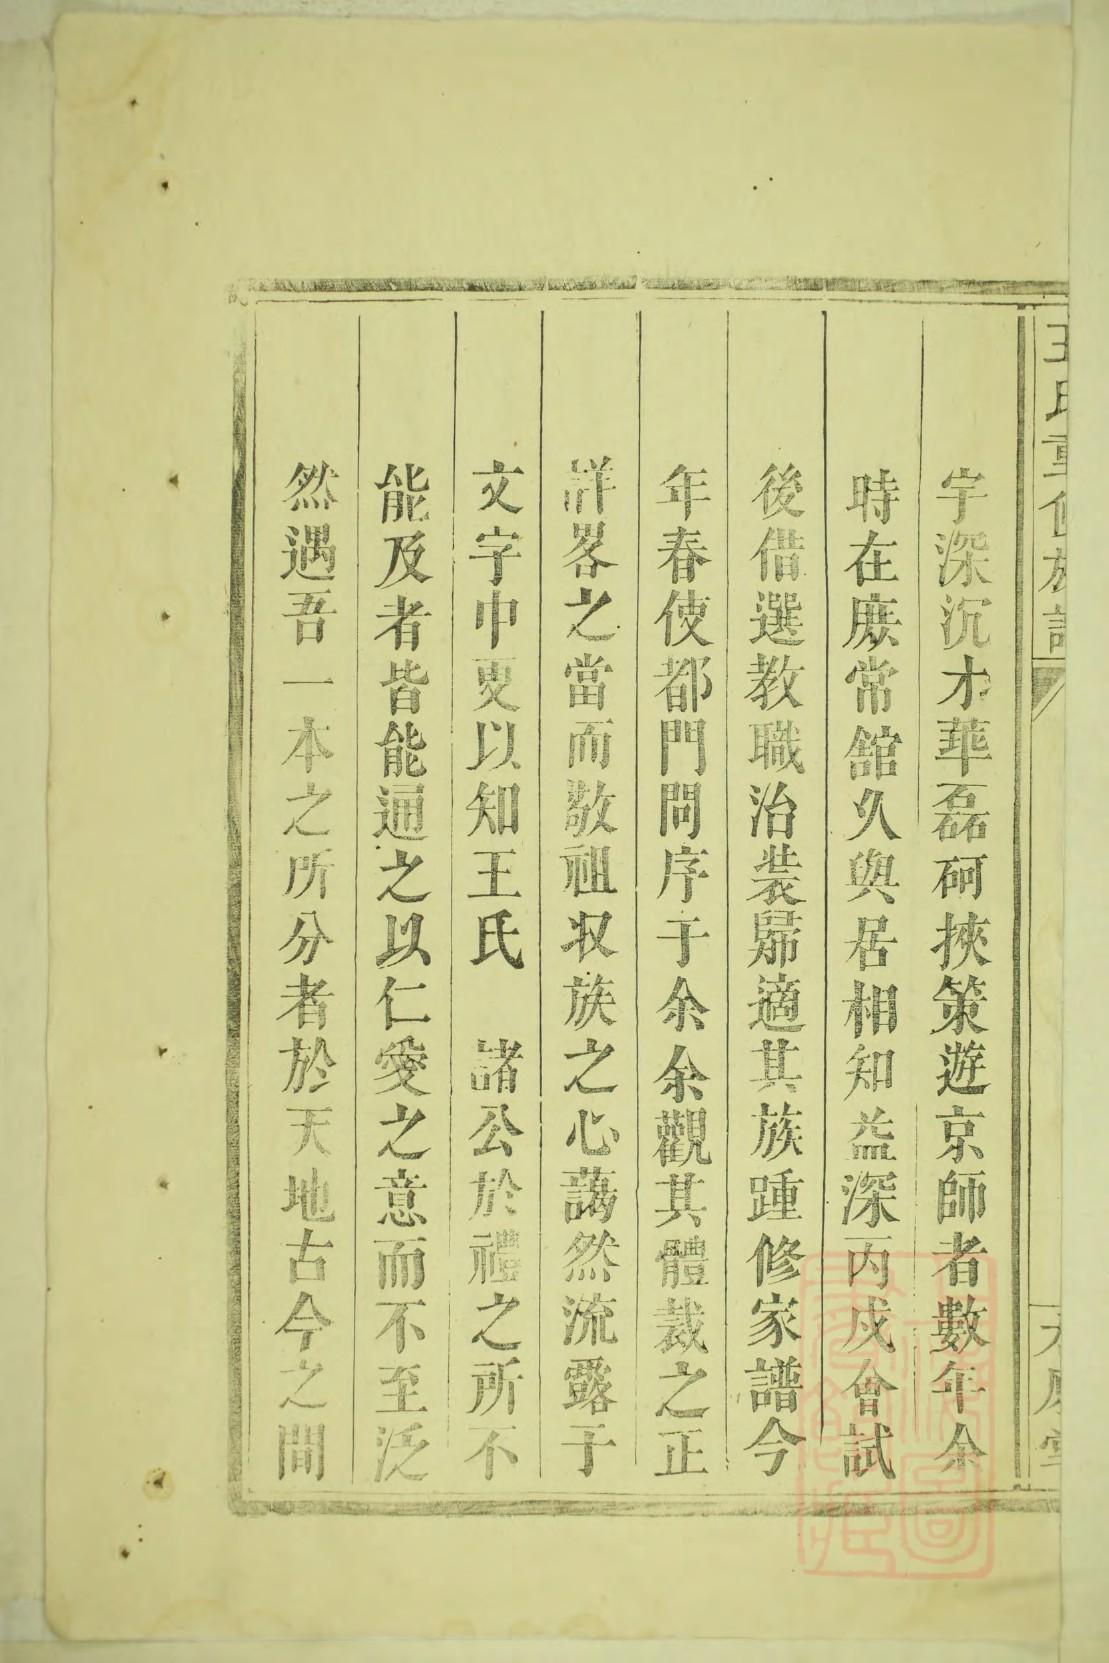 王氏重修族譜
宇深沉才華磊砢挾策遊京師者數年余
時在庶常館久與居相知益深丙戌會試
後借選教職治裝歸適其族踵修家譜今
年春使都門問序于余余觀其體裁之正
詳畧之當而敬祖収族之心藹然流露于
文字中更以知王氏　諸公於禮之所不
能及者皆能通之以仁愛之意而不至泛
然遇吾一本之所分者於天地古今之間